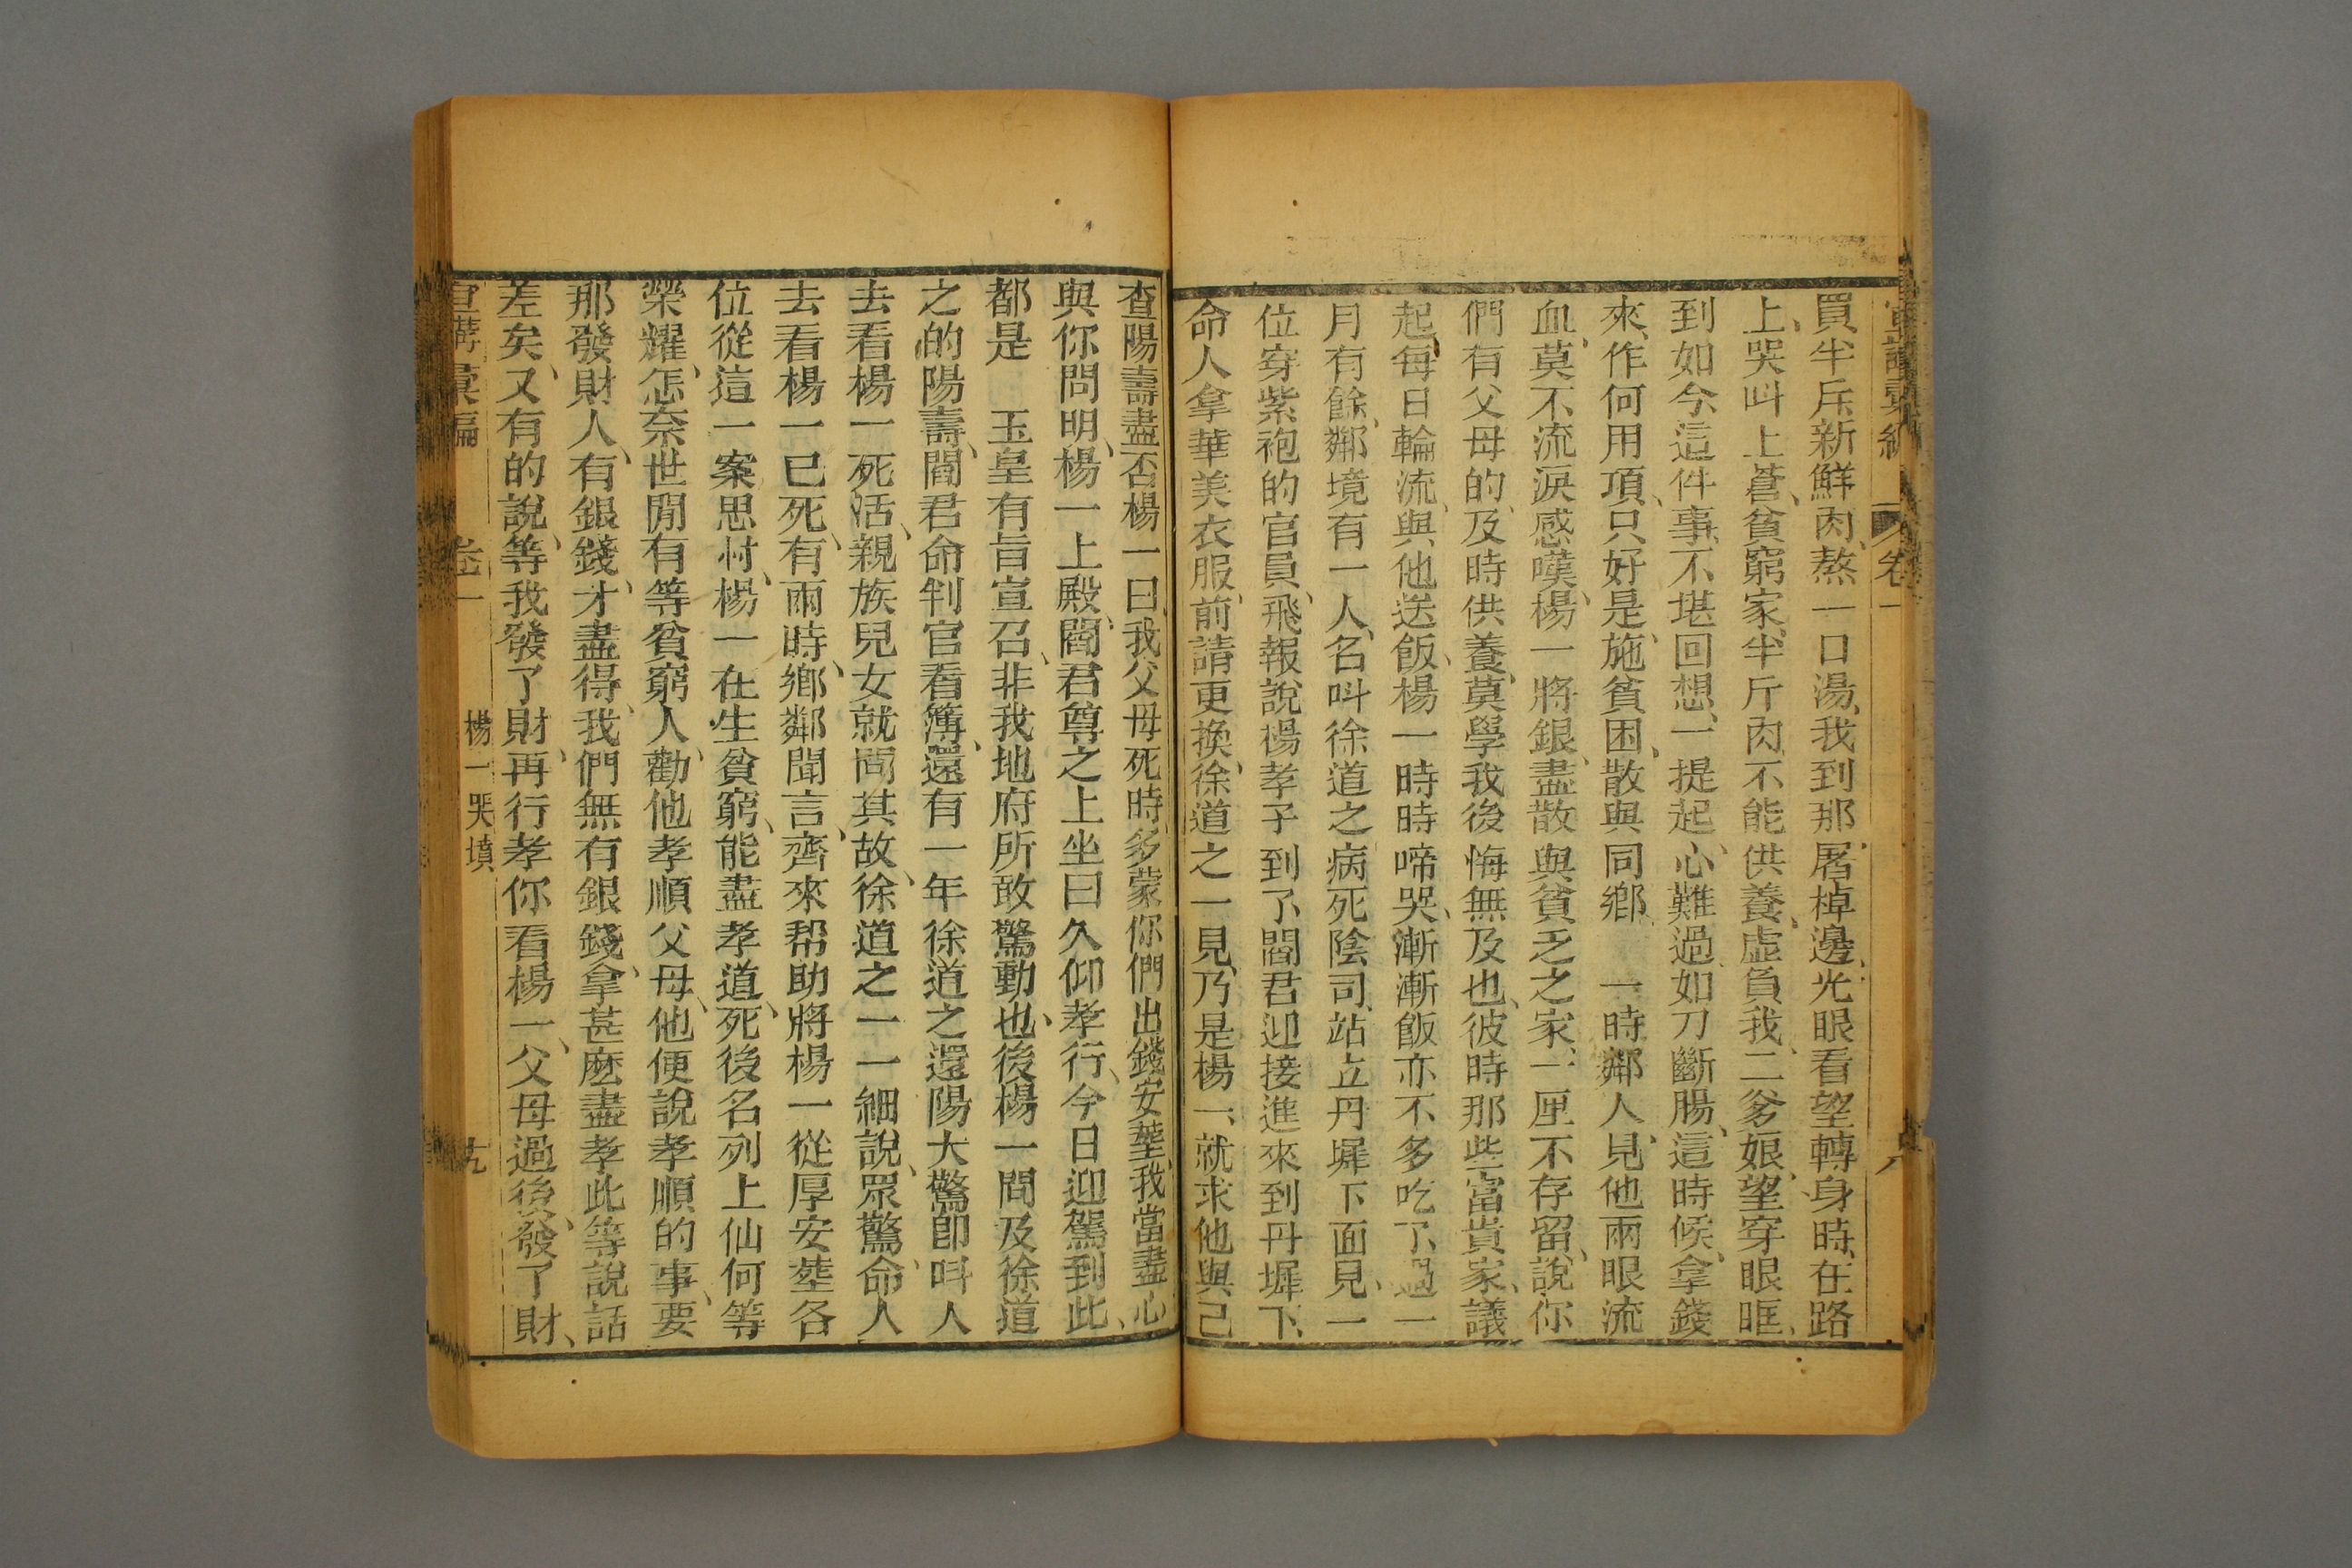 宣講彙編 卷一
買半斤新鮮肉、熬一口湯、我到那屠棹邊、光眼看望轉身時、在路
上、哭叫上蒼、貧窮家、半斤肉不能供養、虛負我、二爹娘、望穿眼眶、
到如今這件事、不堪回想、一提起、心難過、如刀斷腸、這時候、拿錢
來、作何用項、只好是、施貧困、散與同鄉 一時鄰人、見他兩眼流
血、莫不流淚感嘆、楊一將銀、盡散與貧乏之家、一厘不存留、說、你
們有父母的、及時供養、莫學我後悔無及也、彼時那些富貴家、議
起、每日輪流、與他送飯、楊一時時啼哭、漸漸飯亦不多吃了、過一
月有餘、鄰境有一人、名叫徐道之病死陰司、站立丹墀下面見、一
位穿紫袍的官員、飛報說楊孝子到了、閻君迎接進來到丹墀下、
命人拿華美衣服、前請更換、徐道之一見、乃是楊一、就求他與己
查陽壽盡否楊一曰、我父母死時、多蒙你們出錢安塟、我當盡心
與你問明、楊一上殿、閻君尊之上坐曰久仰孝行、今日迎駕到此、
都是 玉皇有旨宣召、非我地府所敢驚動也、後楊一問及徐道
之的陽壽、閻君命判官看簿、還有一年徐道之還陽大驚卽叫人
去看楊一死活、親族兒女就問其故、徐道之一一細說、眾驚、命人
去看楊一已死、有兩時、鄉鄰聞言、齊來帮助將楊一從厚安塟各
位從這一案思忖、楊一在生貧窮、能盡孝道、死後名列上仙何等
榮耀、怎奈世間有等貧窮人、勸他孝順父母、他便說孝順的事、要
那發財人、有銀錢、才盡得、我們無有銀錢、拿甚麽盡孝此等說話
差矣、又有的說、等我發了財、再行孝你看楊一、父母過後、發了財、
宣講彙編 卷一 楊一哭墳 十九